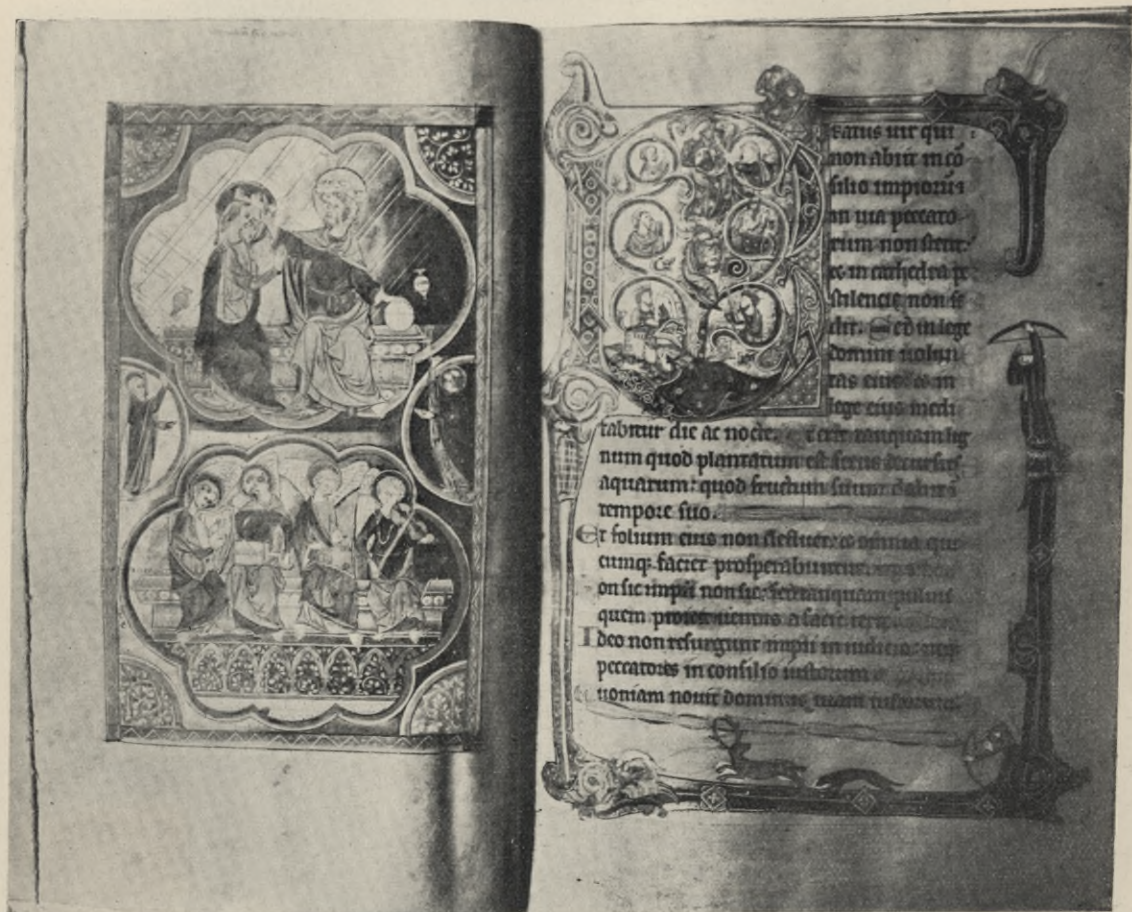 eatus uir qui
non abiit in cō
silio impioru᷑
in uia peccato
rum non stetit:
et in cathedra pe
stilencie non se
dit. Sed in lege
domini uolun
tas eius: et in
lege eius medi
tabitur die ac nocte. Et erit tanquam lig
num quod plantatum est secus decursus
aquarum: quod fructum suum dabit ī
tempore suo.
Et folium eius non defluet: et omnia que
cumq; faciet prosperabuntur.
on sic impii non sic: sed tanquam puluis
quem proicit uentus a facie terre.
Ideo non resurgunt impii in iudicio: neq;
peccatores in consilio iustorum
uoniam nouit dominus uiam iustorum: